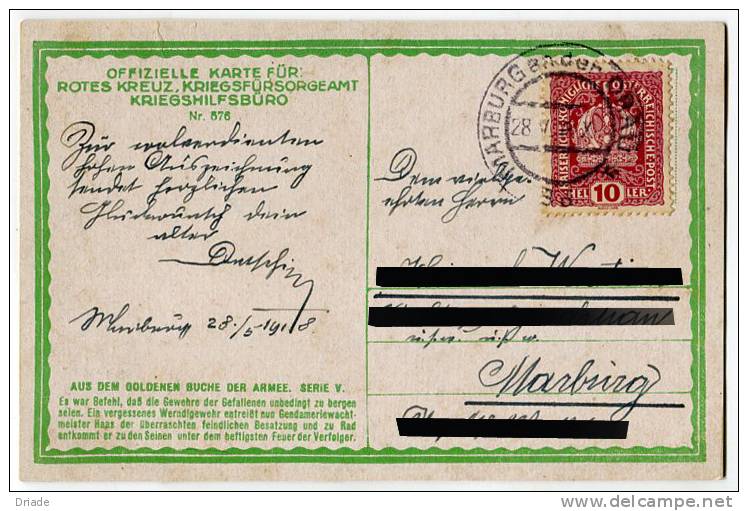 OFFIZIELLE KARTE FÜR:
ROTES KREUZ, KRIEGSFÜRSORGEAMT
KRIEGSHILFSBÜRO
Nr. 576
Zur wolverdienten
hohen Auszeichnung
sendet herzlichen
Glückwunsch dein
alter
Marburg 28./5 1918
AUS DEM GOLDENEN BUCHE DER ARMEE. SERIE V.
Es war Befehl, daß die Gewehre der Gefallenen unbedingt zu bergen
seien. Ein vergessenes Werndlgewehr entreißt nun Gendarmeriewacht-
meister Haas der überraschten feindlichen Besatzung und zu Rad
entkommt er zu den Seinen unter dem heftigsten Feuer der Verfolger.
MARBURG an der DRAU
28 V
KAISERLICHKÖNIGLICHÖSTERREICHISCHEPOST
HEL 10 LER
Dem vielge-
ehrten Herrn
Marburg
Driade
delcampe.net